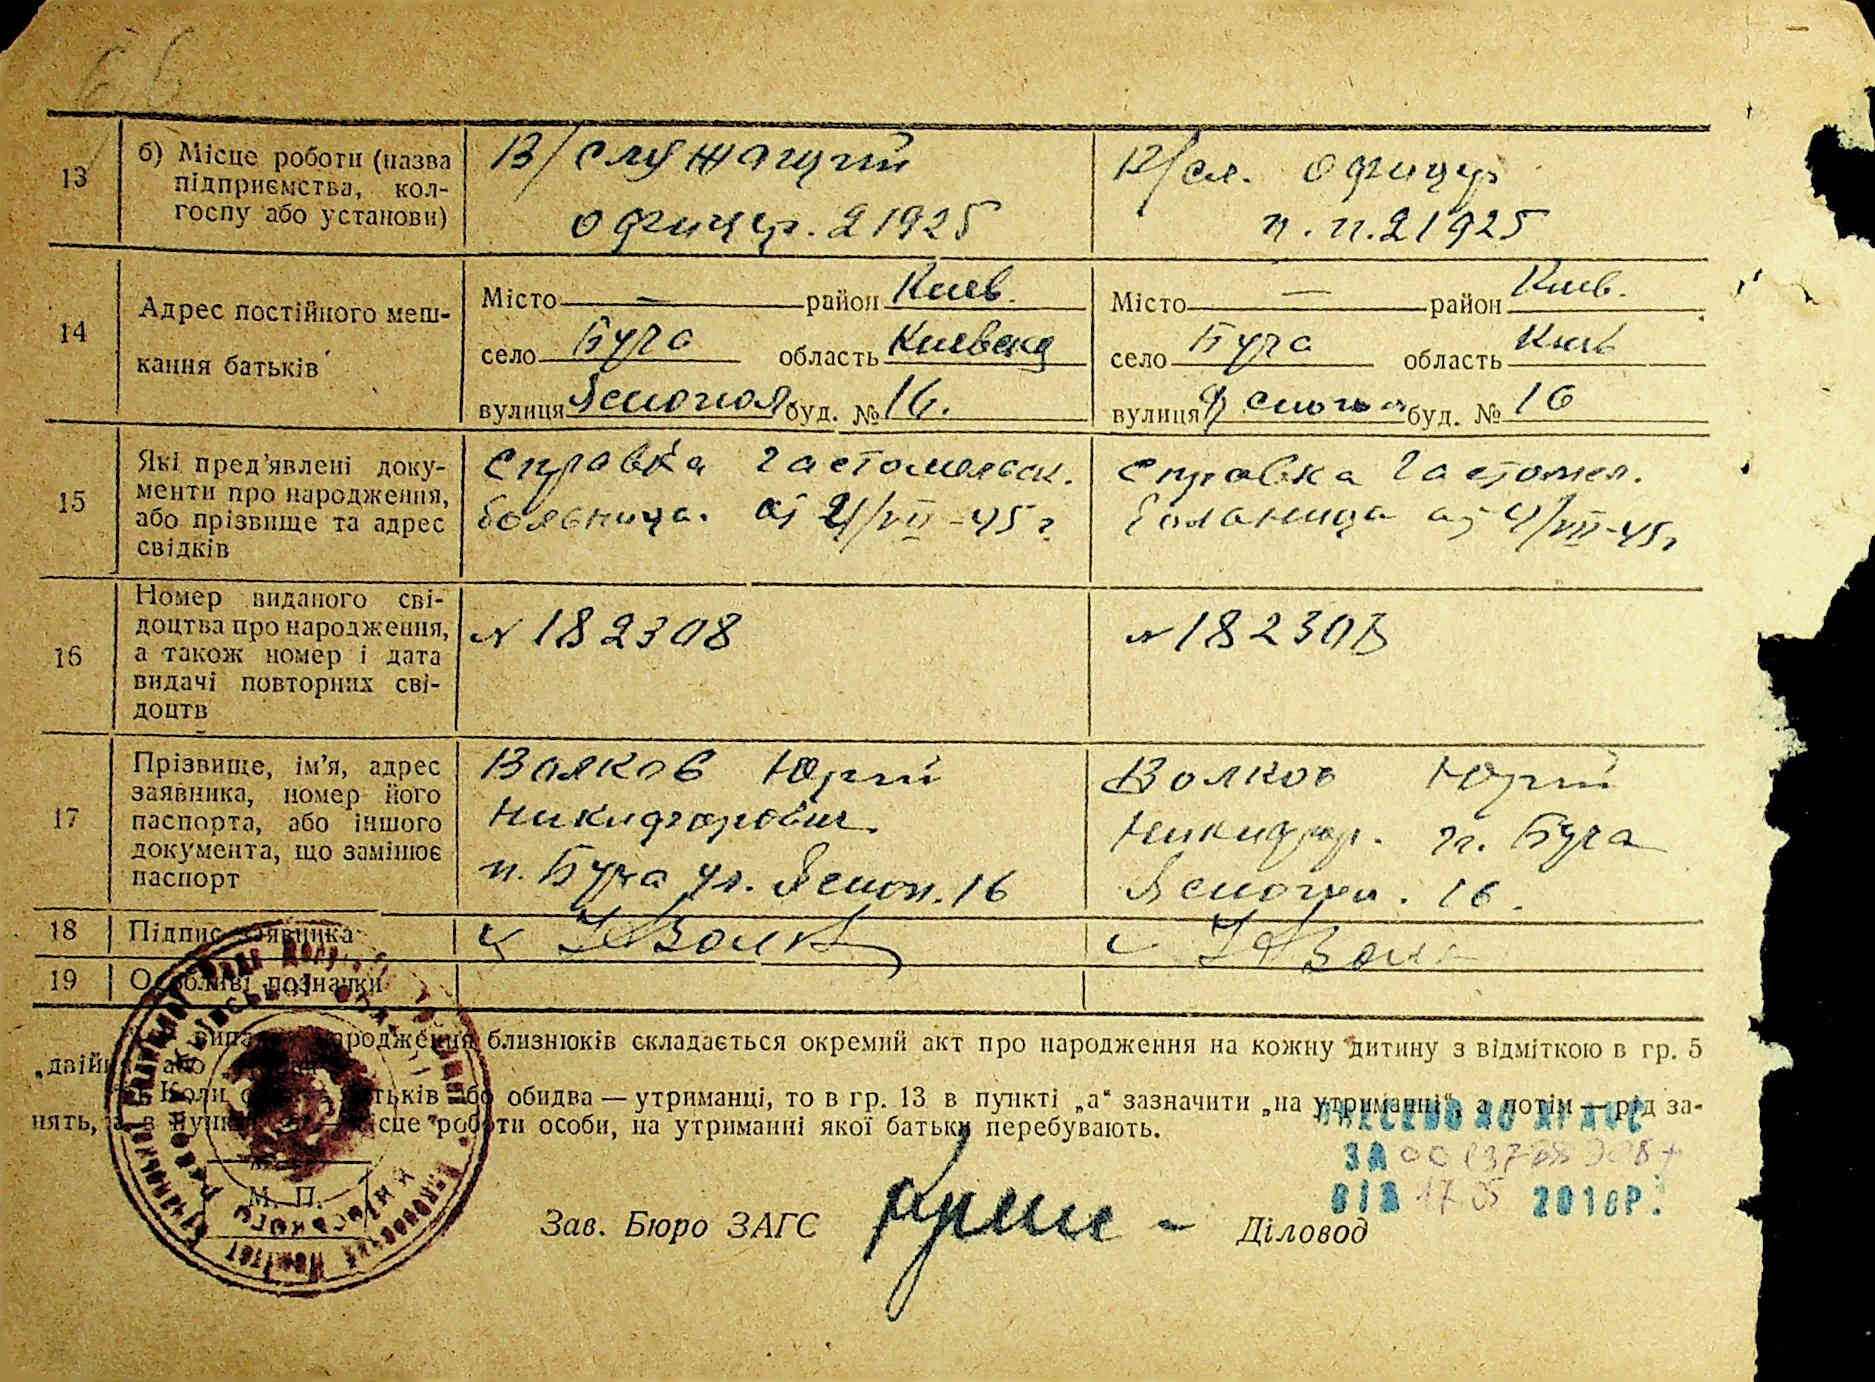 13
б) Місце роботи (назва
підприємства, кол-
госпу або установи)
В/служащий
офицер. 21925
В/сл. офицер
п. п. 21925
14
Адрес постійного меш-
кання батьків
Місто — район Киев.
село Буча область Киевская
вулиця буд. № 16.
Місто — район Киев.
село Буча область Киев
вулиця буд. № 16
15
Які пред'явлені доку-
менти про народження,
або прізвище та адрес
свідків
Справка Гастомельск.
больница. от 21/VII-45 г.
Справка Гастомел.
больница от /VII-45 г
16
Номер виданого сві-
доцтва про народження,
а також номер і дата
видачі повторних сві-
доцтв
N 182308
N 182308
17
Прізвище, ім'я, адрес
заявника, номер його
паспорта, або іншого
документа, що замінює
паспорт
Волков Юрий
Никифорович
п. Буча ул. 16
Волков Юрий
Никифор. п. Буча
16.
18
Підпис заявника
19
Особливі позначки
випадку народження близнюків складається окремий акт про народження на кожну дитину з відміткою в гр. 5
„двійня" або
Коли батьків або обидва — утриманці, то в гр. 13 в пункті „а" зазначити „на утриманні", а потім — рід за-
нять, а в пункті місце роботи особи, на утриманні якої батьки перебувають.
М. П.
Зав. Бюро ЗАГС
Діловод
ВНЕСЕНО ДО ДРАЦС
ЗА
ВІД 17.05 2018Р.